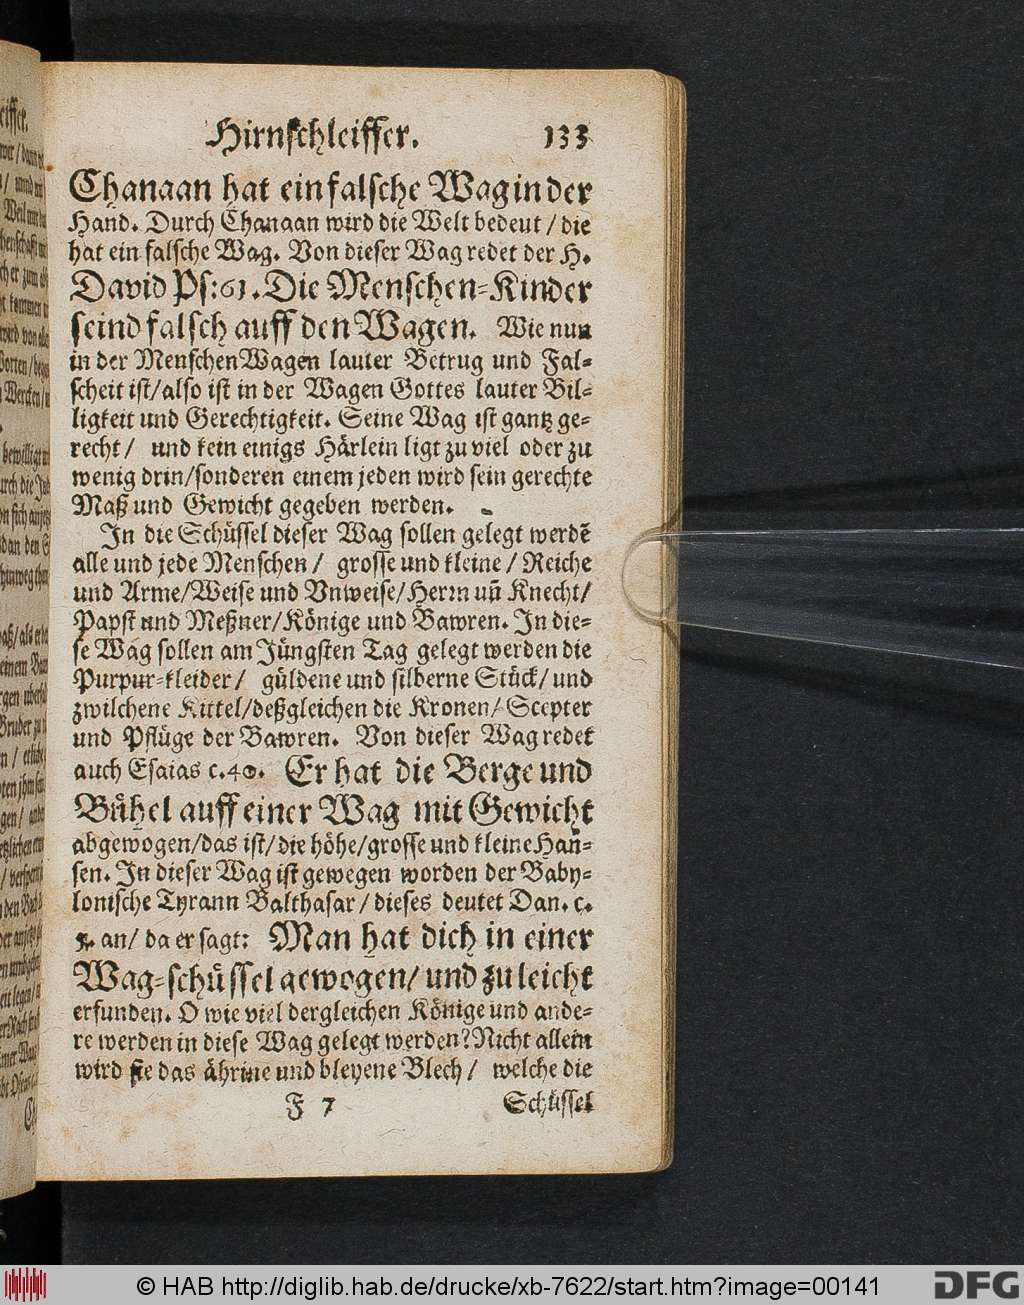 Hirnschleiffer. 133
Chanaan hat ein falsche Wag in der
Hand. Durch Chanaan wird die Welt bedeut / die
hat ein falsche Wag. Von dieser Wag redet der H.
David Ps:61. Die Menschen-Kinder
seind falsch auff den Wagen. Wie nun
in der Menschen Wagen lauter Betrug und Fal-
scheit ist/also ist in der Wagen Gottes lauter Bil-
ligkeit und Gerechtigkeit. Seine Wag ist gantz ge-
recht / und kein einigs Härlein ligt zu viel oder zu
wenig drin/sonderen einem jeden wird sein gerechte
Maß und Gewicht gegeben werden.
In die Schüssel dieser Wag sollen gelegt werdē
alle und jede Menschen / grosse und kleine / Reiche
und Arme/Weise und Vnweise/Herrn uñ Knecht/
Papst und Meßner/Könige und Bawren. In die-
se Wag sollen am Jüngsten Tag gelegt werden die
Purpur-kleider / güldene und silberne Stück/ und
zwilchene Kittel/deßgleichen die Kronen/ Scepter
und Pflüge der Bawren. Von dieser Wag redet
auch Esaias c.40. Er hat die Berge und
Bühel auff einer Wag mit Gewicht
abgewogen/das ist/die höhe/grosse und kleine Han-
sen. In dieser Wag ist gewegen worden der Baby-
lonische Tyrann Balthasar / dieses deutet Dan. c.
5. an/ da er sagt: Man hat dich in einer
Wag-schüssel gewogen/ und zu leicht
erfunden. O wie viel dergleichen Könige und ande-
re werden in diese Wag gelegt werden? Nicht allein
wird sie das ährine und bleyene Blech / welche die
F 7 Schüssel
© HAB http://diglib.hab.de/drucke/xb-7622/start.htm?image=00141
DFG